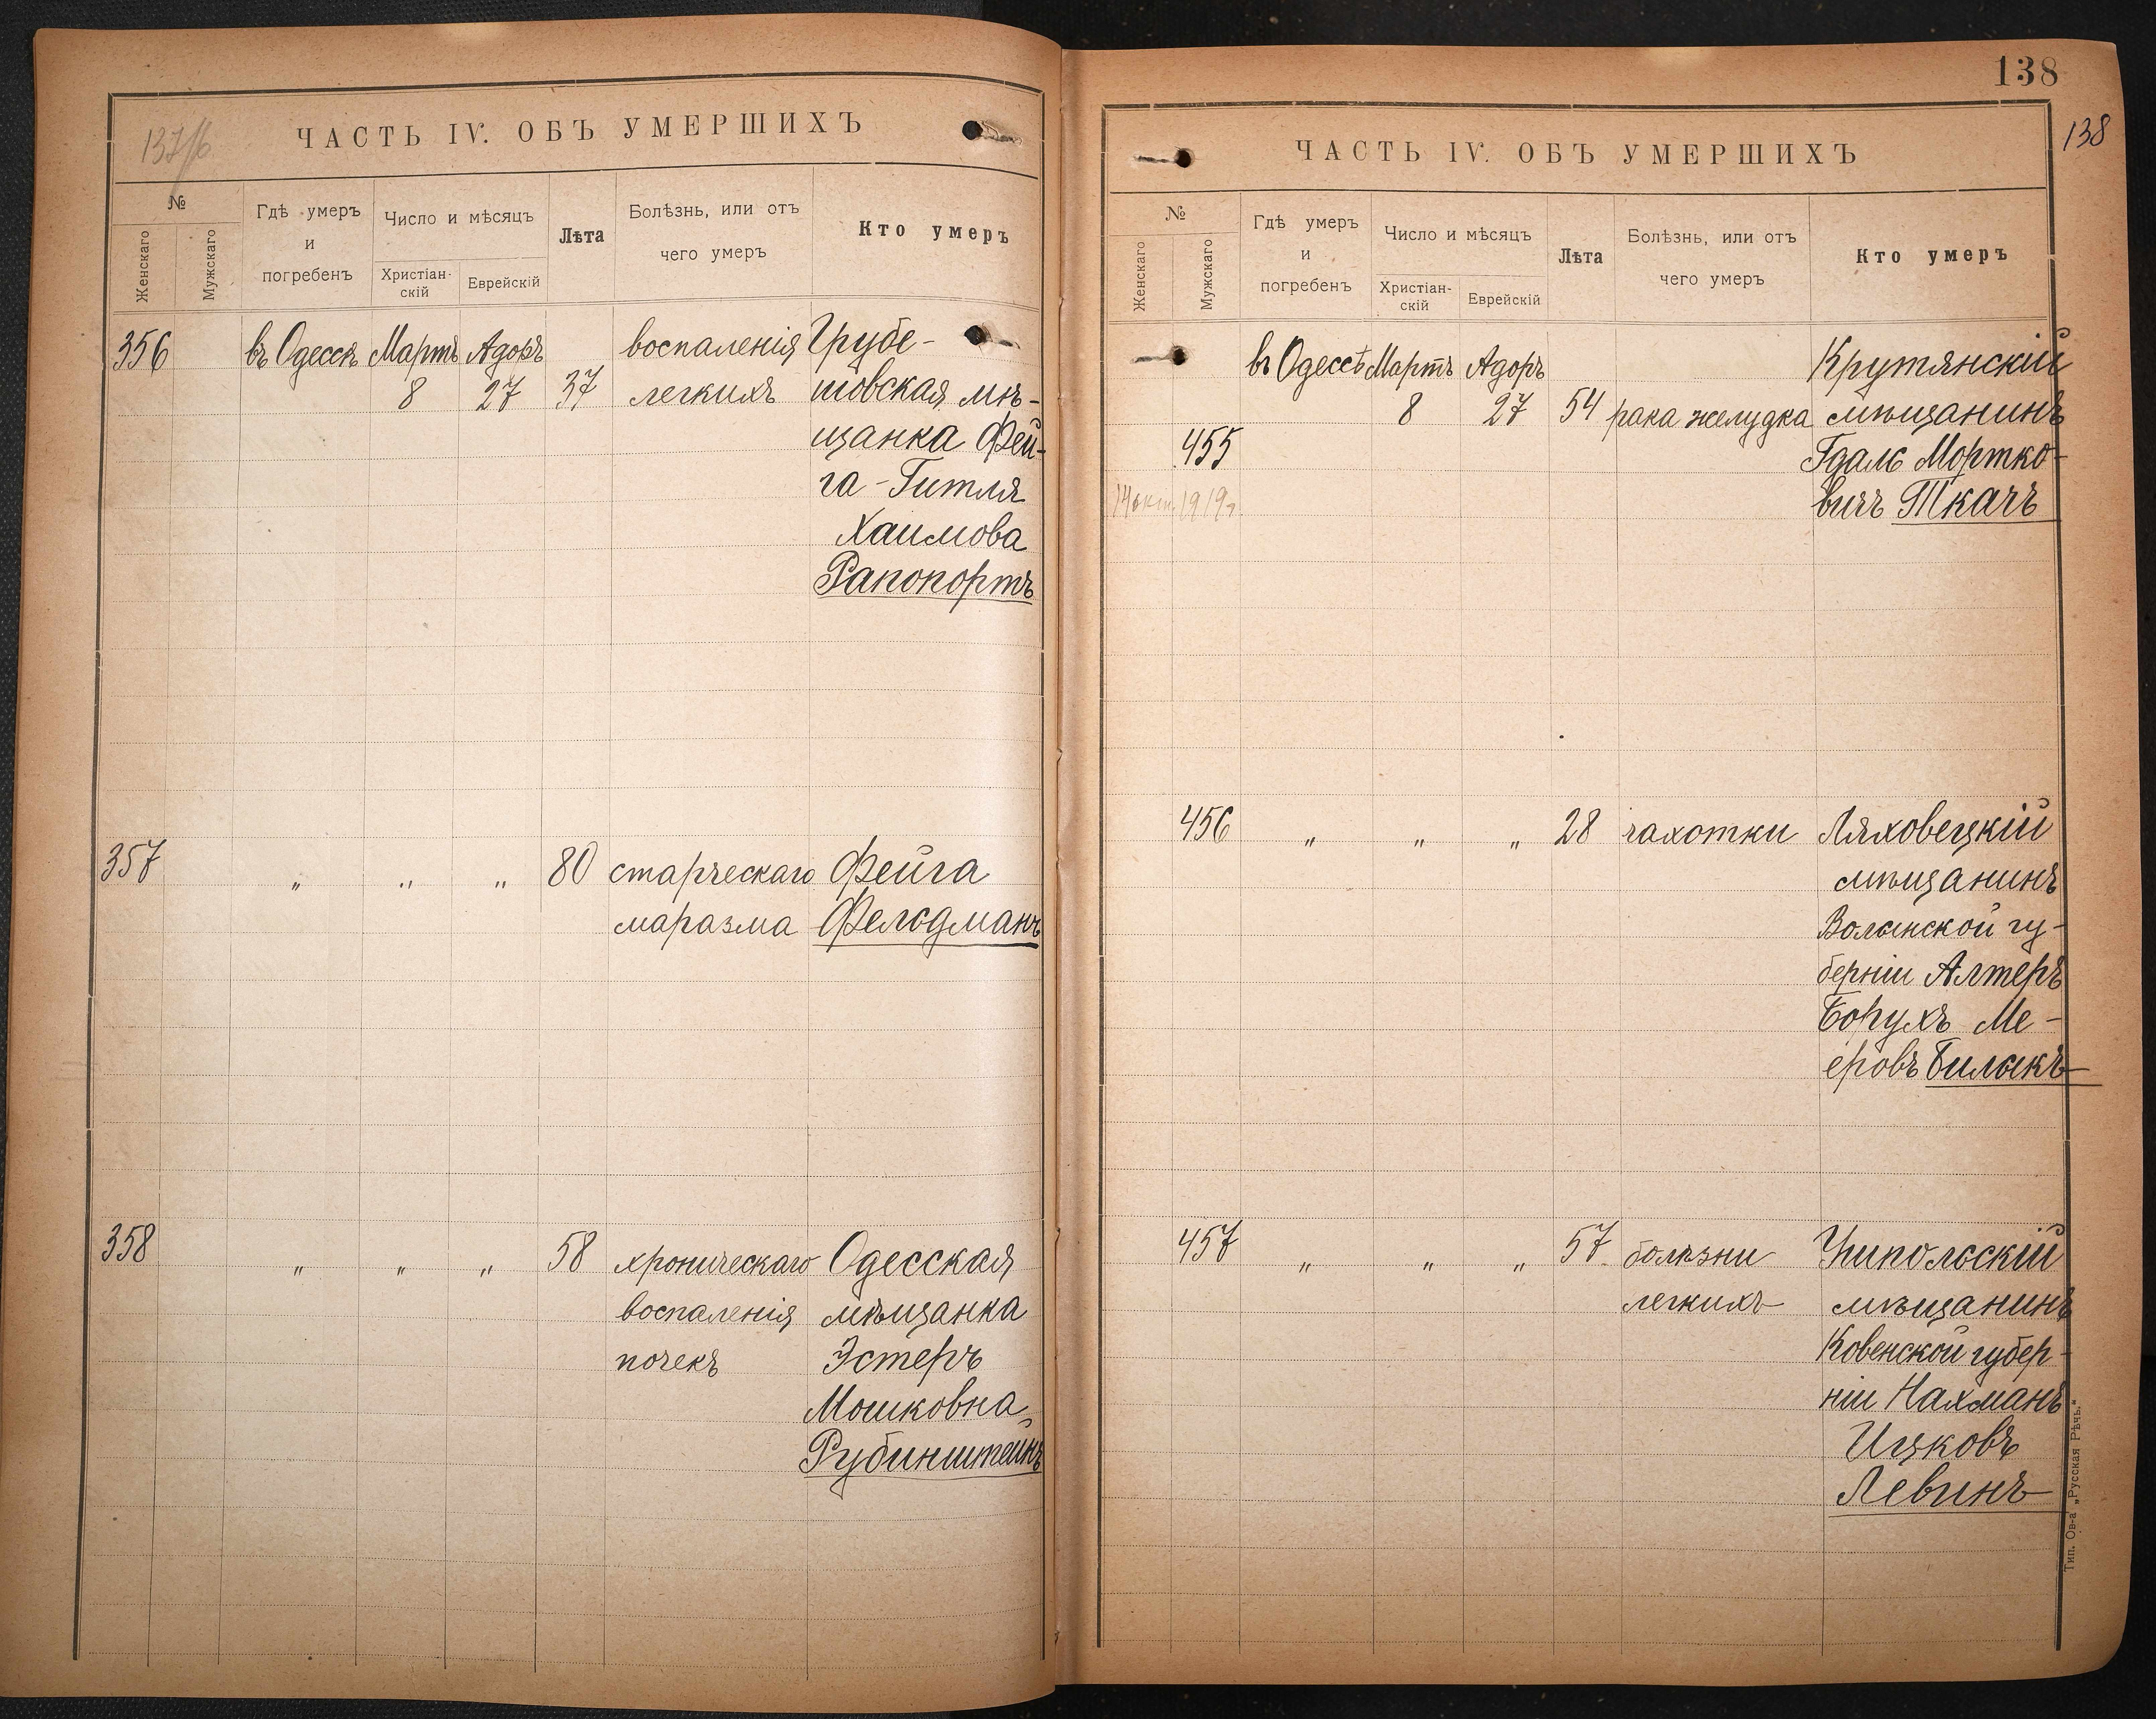 137/б
ЧАСТЬ IV. ОБЪ УМЕРШИХЪ
№
Женскаго
Мужскаго
Гдѣ умеръ
и
погребенъ
Число и мѣсяцъ
Христіан-
скій
Еврейскій
Лѣта
Болѣзнь, или отъ
чего умеръ
Кто умеръ
356 въ Одессѣ Мартъ Адоръ воспаленія Грубе-
8 27 37 легкихъ шовская мѣ-
щанка Фей-
га-Гитля
Хаимова
Рапопортъ
357 " " " 80 старческаго Фейга
маразма Фельдманъ
358 " " " 58 хроническаго Одесская
воспаленія мѣщанка
почекъ Эстеръ
Мошковна
Рубинштейнъ
138
138
ЧАСТЬ IV. ОБЪ УМЕРШИХЪ
№
Женскаго
Мужскаго
Гдѣ умеръ
и
погребенъ
Число и мѣсяцъ
Христіан-
скій
Еврейскій
Лѣта
Болѣзнь, или отъ
чего умеръ
Кто умеръ
въ Одессѣ Мартъ Адоръ Крутянскій
8 27 54 рака желудка мѣщанинъ
455 Гдаль Мортко-
14 окт. 1919г. вичъ Ткачъ
456 " " " 28 чахотки Ляховецкій
мѣщанинъ
Волынской гу-
берніи Алтеръ
Борухъ Ме-
еровъ Билыкъ
457 " " " 57 болѣзни
легкихъ мѣщанинъ
Ковенской губер-
ніи Нахманъ
Ицковъ
Левинъ
Тип. Ов-а „Русская Рѣчь."